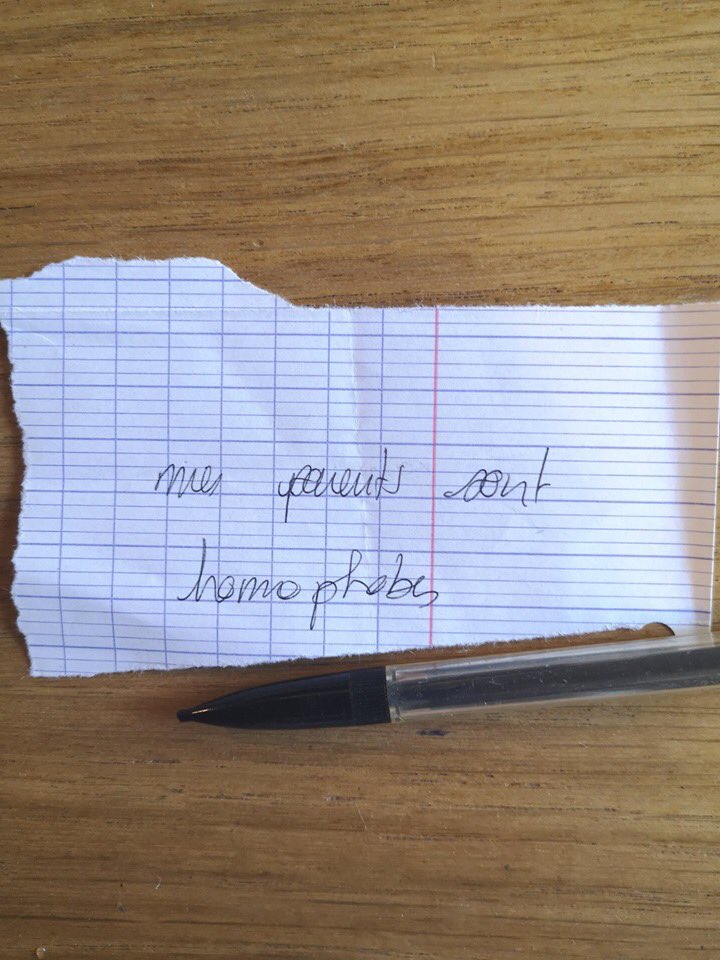 mes parents sont
homophobes